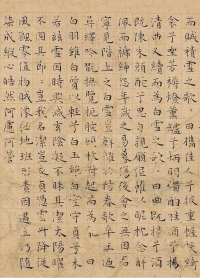 而賦積雪之歌歌曰攜佳人兮披重幄援綺
衾兮坐芳縟燎薰爐兮炳明燭酌桂酒兮揚
清曲又續而為白雪之歌歌曰曲既揚兮酒
既陳朱顏酡兮思自親願低帷以昵枕念解
珮而褫紳怨年歲之易暮傷後會之無因君
寧見階上之白雪豈鮮耀於陽春歌卒王迺
尋繹吟翫撫覽扼腕顧謂枚叔起而為亂曰
白羽雖白質以輕兮白玉雖白空守貞兮未
若茲雪因時興滅玄陰凝不昧其潔太陽曜
不固其節節豈我名潔豈我貞憑雲升降從
風飄零值物賦像任地班形素因遇立汙隨
染成縱心皓然何慮何營